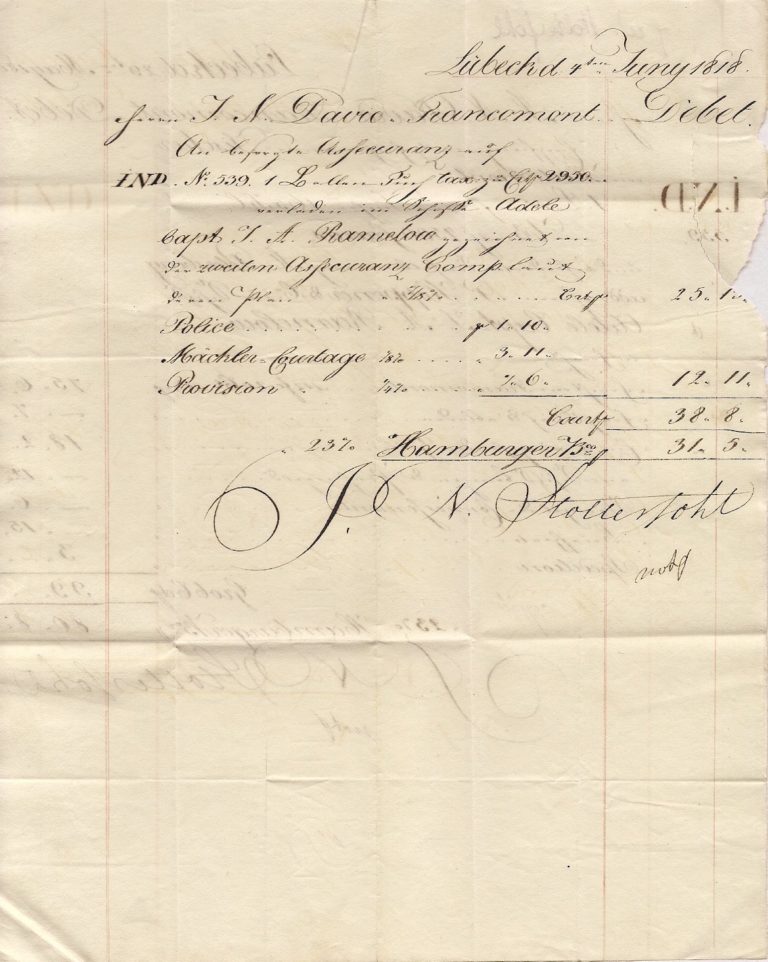 Lübeck d. 4ten Juny 1818.
Herrn J. N. David. Francomont. Debet.
An besorgte Assecuranz auf
IND. No. 539. 1 Ballen Tuch taxirt Crt 2950.
verladen im Schiffe Adele
Capt J. A. Ramelow gezeichnet von
der zweiten Assecuranz Comp laut
deren Plan 7/8% Crt 25. 1
Police 1. 10.
Mäckler-Courtage 1/8% 3. 11.
Provision 1/4% 7. 6. 12. 11.
Court 38. 8.
23% Hamburger Bco 31. 5.
J. N. Stolterfoht